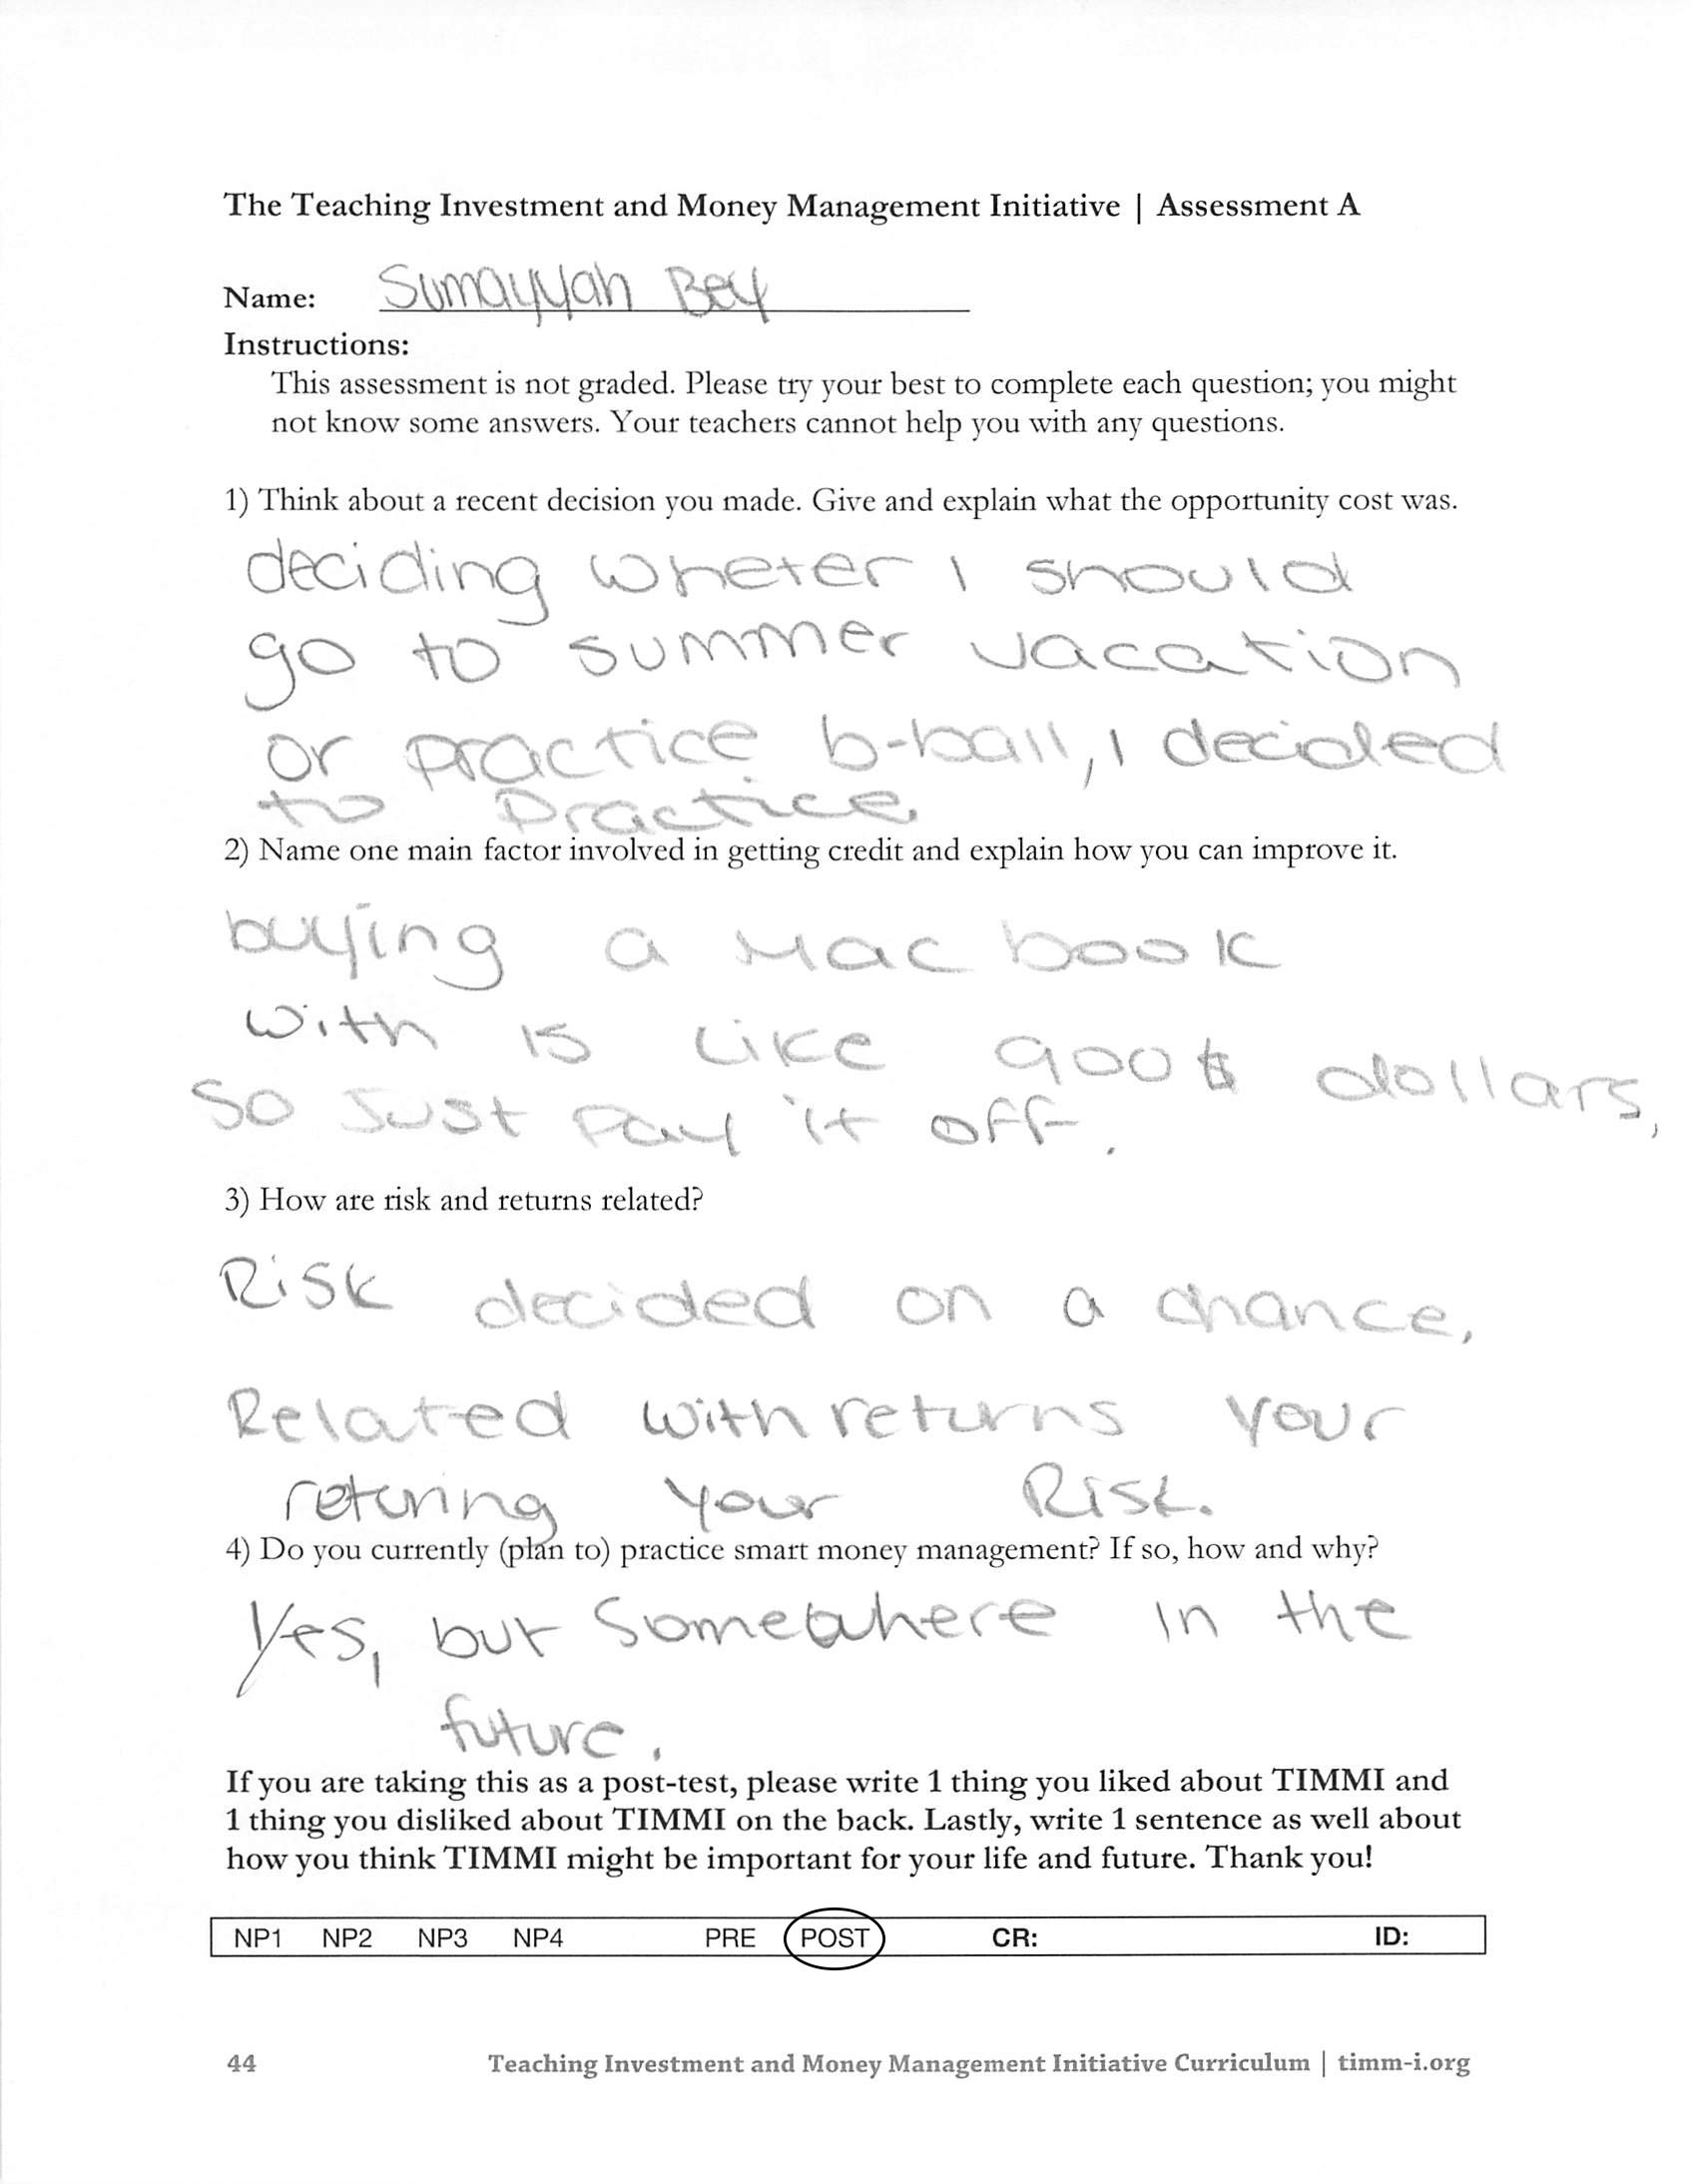 The Teaching Investment and Money Management Initiative | Assessment A
Name: Sumayyah Bey
Instructions:
This assessment is not graded. Please try your best to complete each question; you might
not know some answers. Your teachers cannot help you with any questions.
1) Think about a recent decision you made. Give and explain what the opportunity cost was.
deciding wheter I should
go to summer vacation
or practice b-ball, I decided
to practice.
2) Name one main factor involved in getting credit and explain how you can improve it.
buying a Mac book
with is like 900$ dollars,
so just pay it off.
3) How are risk and returns related?
Risk decided on a chance,
Related with returns your
returing your Risk.
4) Do you currently (plan to) practice smart money management? If so, how and why?
Yes, but Somewhere in the
future.
If you are taking this as a post-test, please write 1 thing you liked about TIMMI and
1 thing you disliked about TIMMI on the back. Lastly, write 1 sentence as well about
how you think TIMMI might be important for your life and future. Thank you!
NP1 NP2 NP3 NP4 PRE POST CR: ID:
44 Teaching Investment and Money Management Initiative Curriculum | timm-i.org